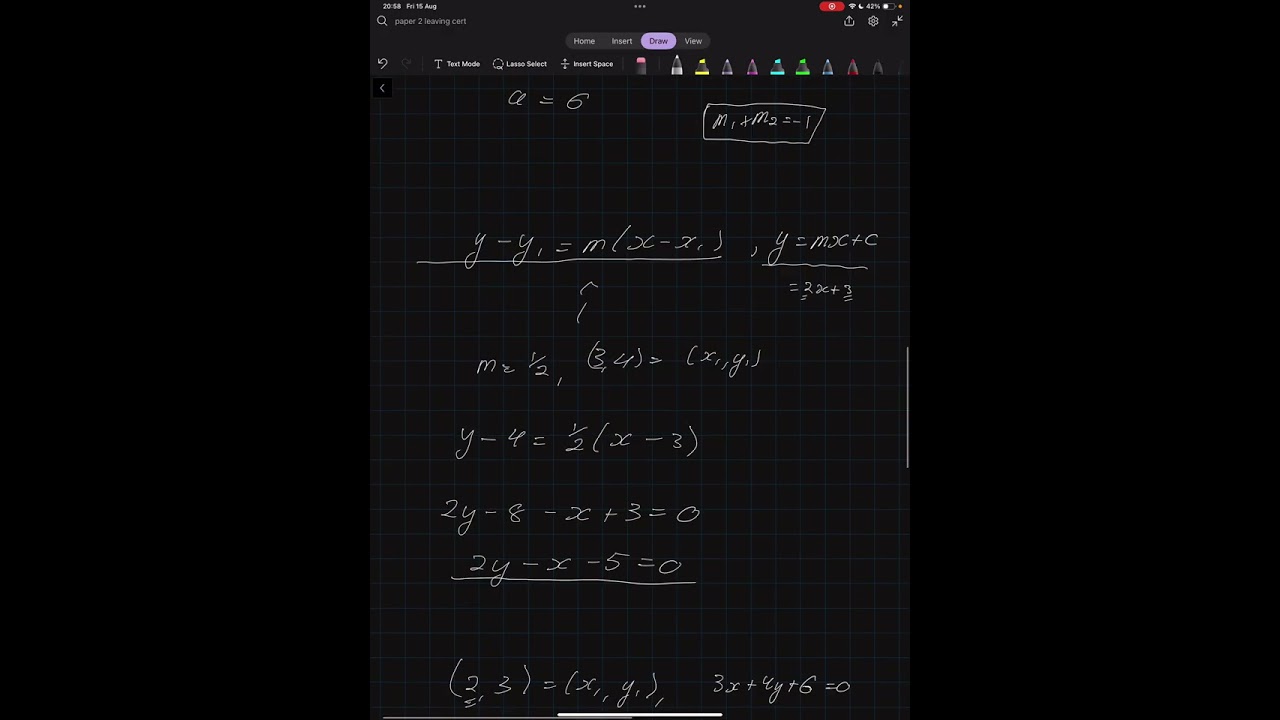 20:58 Fri 15 Aug
42%
paper 2 leaving cert
Home Insert Draw View
Text Mode Lasso Select Insert Space
a = 6
m₁ × m₂ = -1
y - y₁ = m(x - x₁) , y = mx + c
= 2x + 3
m = 1/2 , (3, 4) = (x₁, y₁)
y - 4 = 1/2 (x - 3)
2y - 8 - x + 3 = 0
2y - x - 5 = 0
(2, 3) = (x₁, y₁), 3x + 4y + 6 = 0